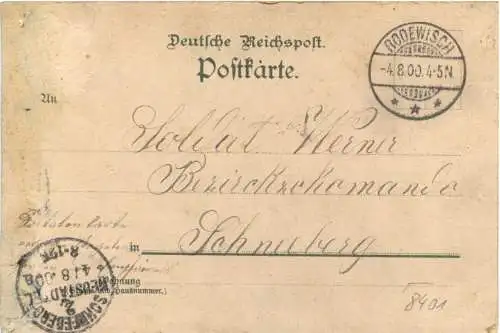 Deutsche Reichspost.
Postkarte.
RODEWISCH
-4.8.00.4-5N.
An
Soldat Werner
Bezirckskomando
in Schneeberg
Wohnung
Hausnummer.)
SCHNEEBERG-
NEUSTÄDTEL
4/8.00
8-12N
8401